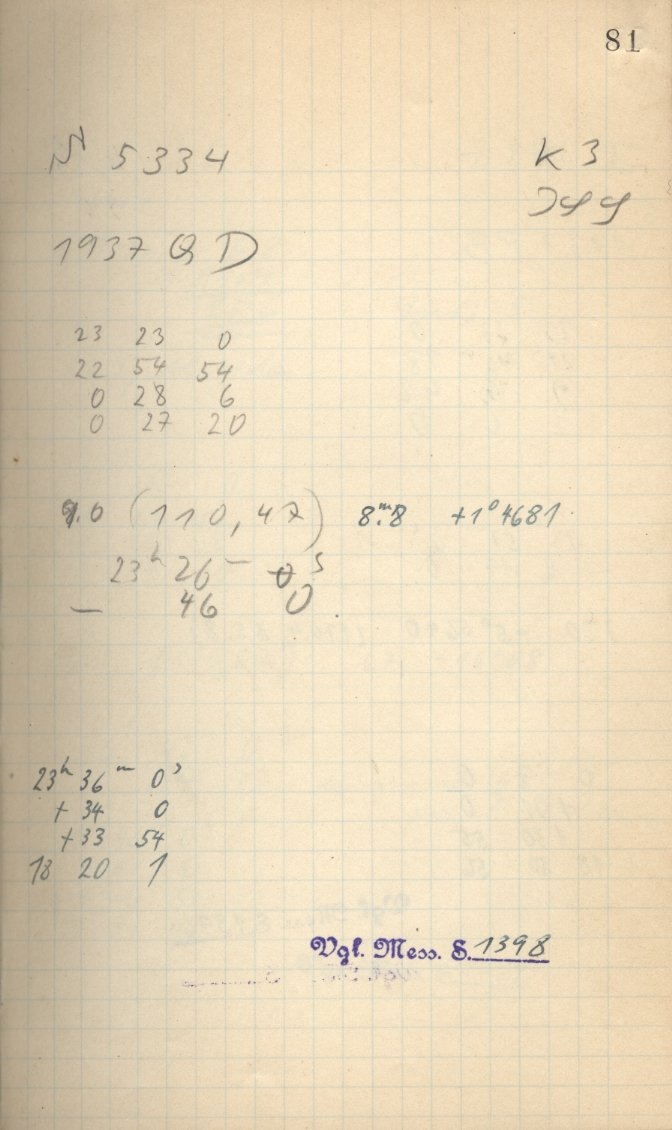 81
N 5334 K 3
1937 QD
23 23 0
22 54 54
0 28 6
0 27 20
9.0 (110,47) 8.ᵐ8 +1°4681
23ʰ 26ᵐ 0ˢ
— 46 0
23ʰ 36ᵐ 0ˢ
+ 34 0
+ 33 54
18 20 1
Vgl. Mess. S. 1398